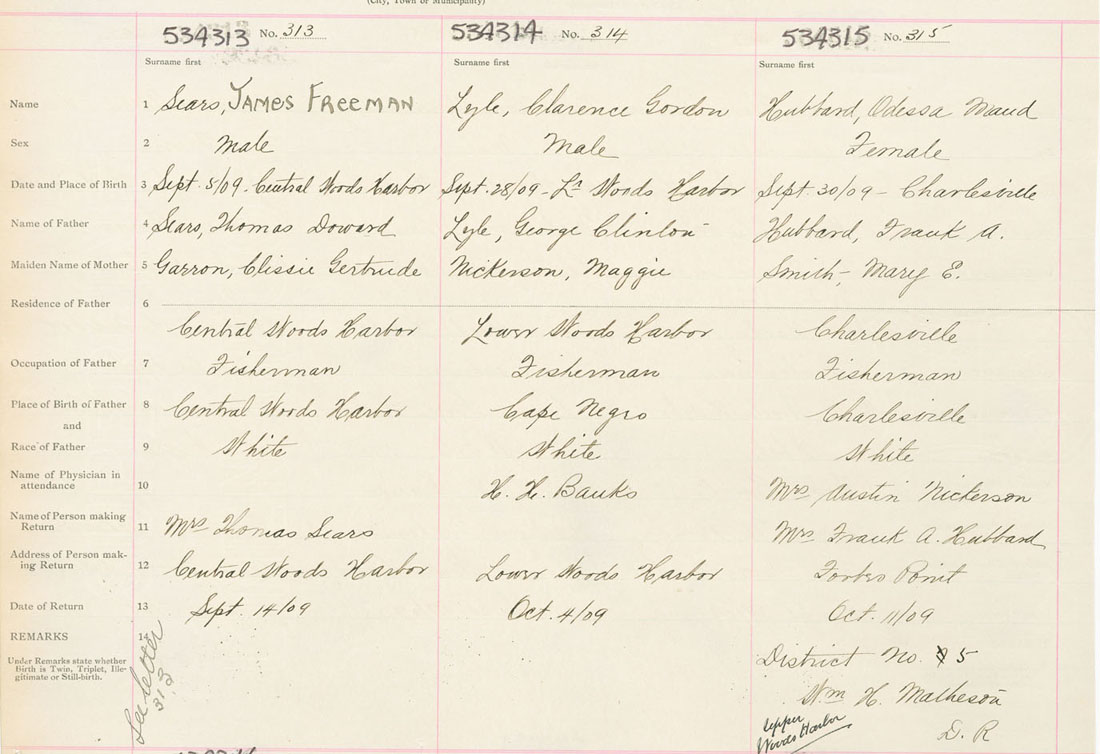 (City, Town or Municipality)
534313 No. 313 534314 No. 314 534315 No. 315
Surname first Surname first Surname first
Name 1 Sears, JAMES FREEMAN Lyle, Clarence Gordon Hubbard, Odessa Maud
Sex 2 Male Male Female
Date and Place of Birth 3 Sept. 5/09 - Central Woods Harbor Sept. 28/09 - Lr Woods Harbor Sept. 30/09 - Charlesville
Name of Father 4 Sears, Thomas Doward Lyle, George Clinton Hubbard, Frank A.
Maiden Name of Mother 5 Garron, Clissie Gertrude Nickerson, Maggie Smith, Mary E.
Residence of Father 6
Central Woods Harbor Lower Woods Harbor Charlesville
Occupation of Father 7 Fisherman Fisherman Fisherman
Place of Birth of Father 8 Central Woods Harbor Cape Negro Charlesville
and
Race of Father 9 White White White
Name of Physician in
attendance 10 H. H. Banks Mrs Austin Nickerson
Name of Person making
Return 11 Mrs Thomas Sears Mrs Frank A. Hubbard
Address of Person mak-
ing Return 12 Central Woods Harbor Lower Woods Harbor Forbes Point
Date of Return 13 Sept. 14/09 Oct. 4/09 Oct. 11/09
REMARKS 14
Under Remarks state whether
Birth is Twin, Triplet, Ille-
gitimate or Still-birth.
See letter
313
District No. 5
Wm H. Matheson
D. R
Upper
Woods Harbor